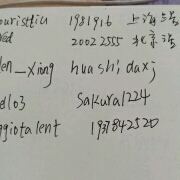 ouristic 1981916 上海
ed 20022555 北京
en_Xiong huashidaxj
dlo3 Sakura1224
ggiotalent 1937842520